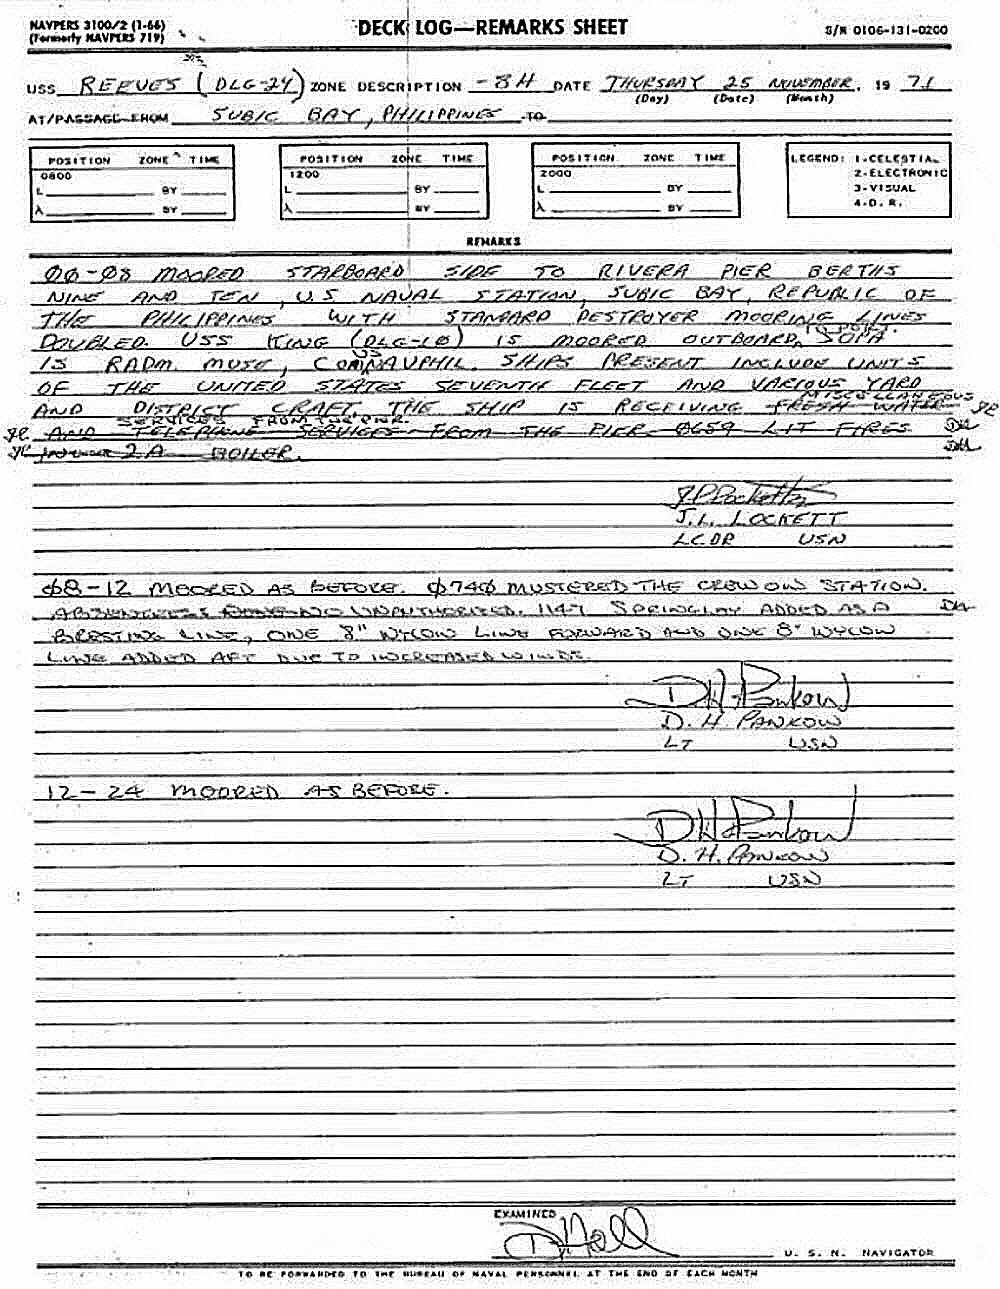 NAVPERS 3100/2 (1-66)
(Formerly NAVPERS 719)
DECK LOG—REMARKS SHEET
S/N 0106-131-0200
USS REEVES (DLG-24) ZONE DESCRIPTION -8H DATE THURSDAY 25 NOVEMBER, 19 71
(Day) (Date) (Month)
AT/PASSAGE FROM SUBIC BAY, PHILIPPINES TO
POSITION ZONE TIME
0800
L BY
λ BY
POSITION ZONE TIME
1200
L BY
λ BY
POSITION ZONE TIME
2000
L BY
λ BY
LEGEND: 1-CELESTIAL
2-ELECTRONIC
3-VISUAL
4-D. R.
REMARKS
00-08 MOORED STARBOARD SIDE TO RIVERA PIER BERTHS
NINE AND TEN, U.S NAVAL STATION, SUBIC BAY, REPUBLIC OF
THE PHILIPPINES WITH STANDARD DESTROYER MOORING LINES
DOUBLED. USS KING (DLG-10) IS MOORED OUTBOARD TO PORT. SOPA
IS RADM. MUSE, COMUSNAVPHIL. SHIPS PRESENT INCLUDE UNITS
OF THE UNITED STATES SEVENTH FLEET AND VARIOUS YARD
MISCELLANEOUS
AND DISTRICT CRAFT. THE SHIP IS RECEIVING FRESH WATER
SERVICES FROM THE PIER.
AND TELEPHONE SERVICES FROM THE PIER 0659 LIT FIRES
2A BOILER.
J. L. LOCKETT
LCDR USN
08-12 MOORED AS BEFORE. 0740 MUSTERED THE CREW ON STATION.
ABSENTEES: NO UNAUTHORIZED. 1147 SPRINGLAY ADDED AS A
BRESTING LINE, ONE 8" NYLON LINE FORWARD AND ONE 8" NYLON
LINE ADDED AFT DUE TO INCREASED WINDS.
D. H. Pankow
D. H. PANKOW
LT USN
12-24 MOORED AS BEFORE.
D. H. Pankow
D. H. PANKOW
LT USN
EXAMINED
U. S. N. NAVIGATOR
TO BE FORWARDED TO THE BUREAU OF NAVAL PERSONNEL AT THE END OF EACH MONTH